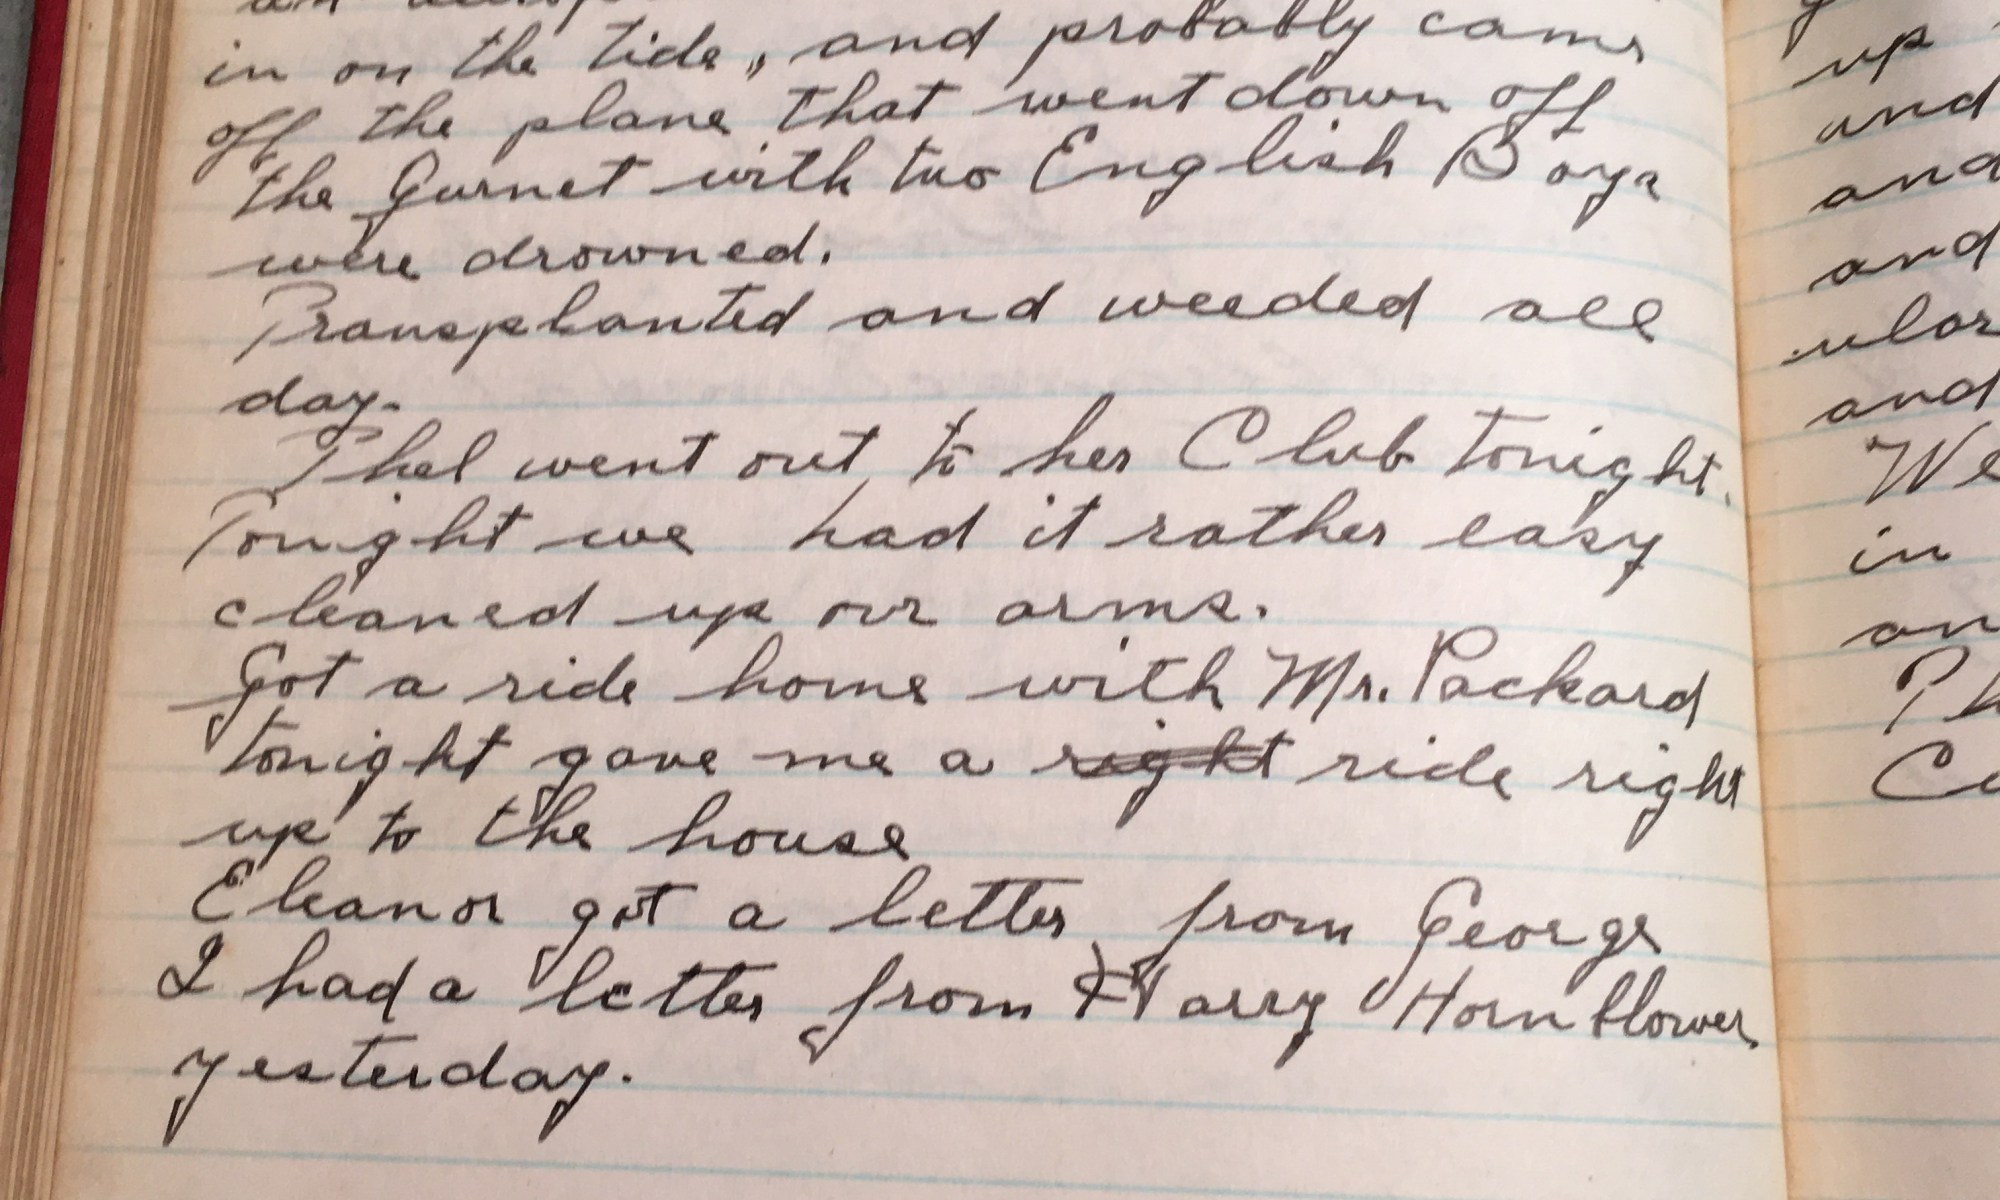 in on the tide, and probably came
off the plane that went down off
the Gurnet with two English Boys
were drowned.
Transplanted and weeded all
day.
Thel went out to her Club tonight.
Tonight we had it rather easy
cleaned up our arms.
Got a ride home with Mr. Packard
tonight gave me a right ride right
up to the house
Eleanor got a letter from George
I had a letter from Harry Hornblower
yesterday.
up
and
and
and
and
We
in